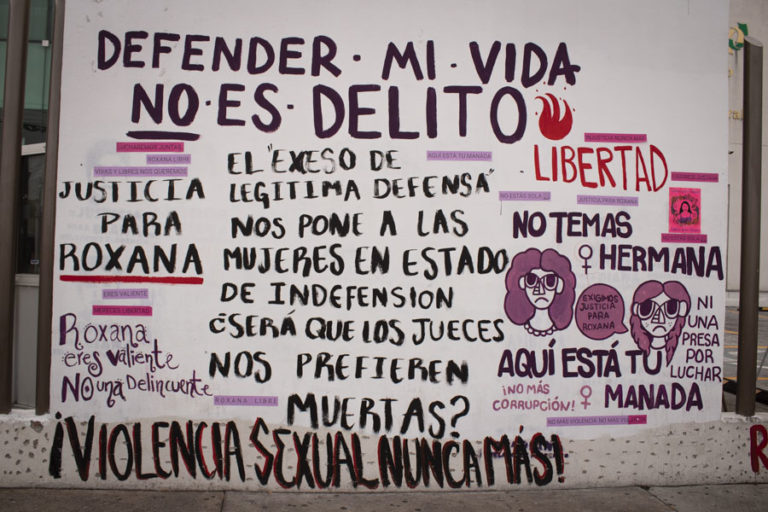 DEFENDER · MI · VIDA
NO · ES · DELITO
LIBERTAD
LUCHAREMOS JUNTAS
ROXANA LIBRE
VIVAS Y LIBRES NOS QUEREMOS
JUSTICIA
PARA
ROXANA
ERES VALIENTE
MERECES LIBERTAD
Roxana
eres valiente
No una Delincuente
EL "EXESO DE
LEGITIMA DEFENSA"
NOS PONE A LAS
MUJERES EN ESTADO
DE INDEFENSION
¿SERÁ QUE LOS JUECES
NOS PREFIEREN
MUERTAS?
ROXANA LIBRE
AQUÍ ESTA TU MANADA
INJUSTICIA NUNCA MÁS
NO ESTÁS SOLA
JUSTICIA PARA ROXANA
NO ESTÁS SOLA
NO TEMAS
HERMANA
EXIGIMOS
JUSTICIA
PARA
ROXANA
NI
UNA
PRESA
POR
LUCHAR
AQUÍ ESTÁ TU
MANADA
¡NO MÁS
CORRUPCIÓN!
¡VIOLENCIA SEXUAL NUNCA MÁS!